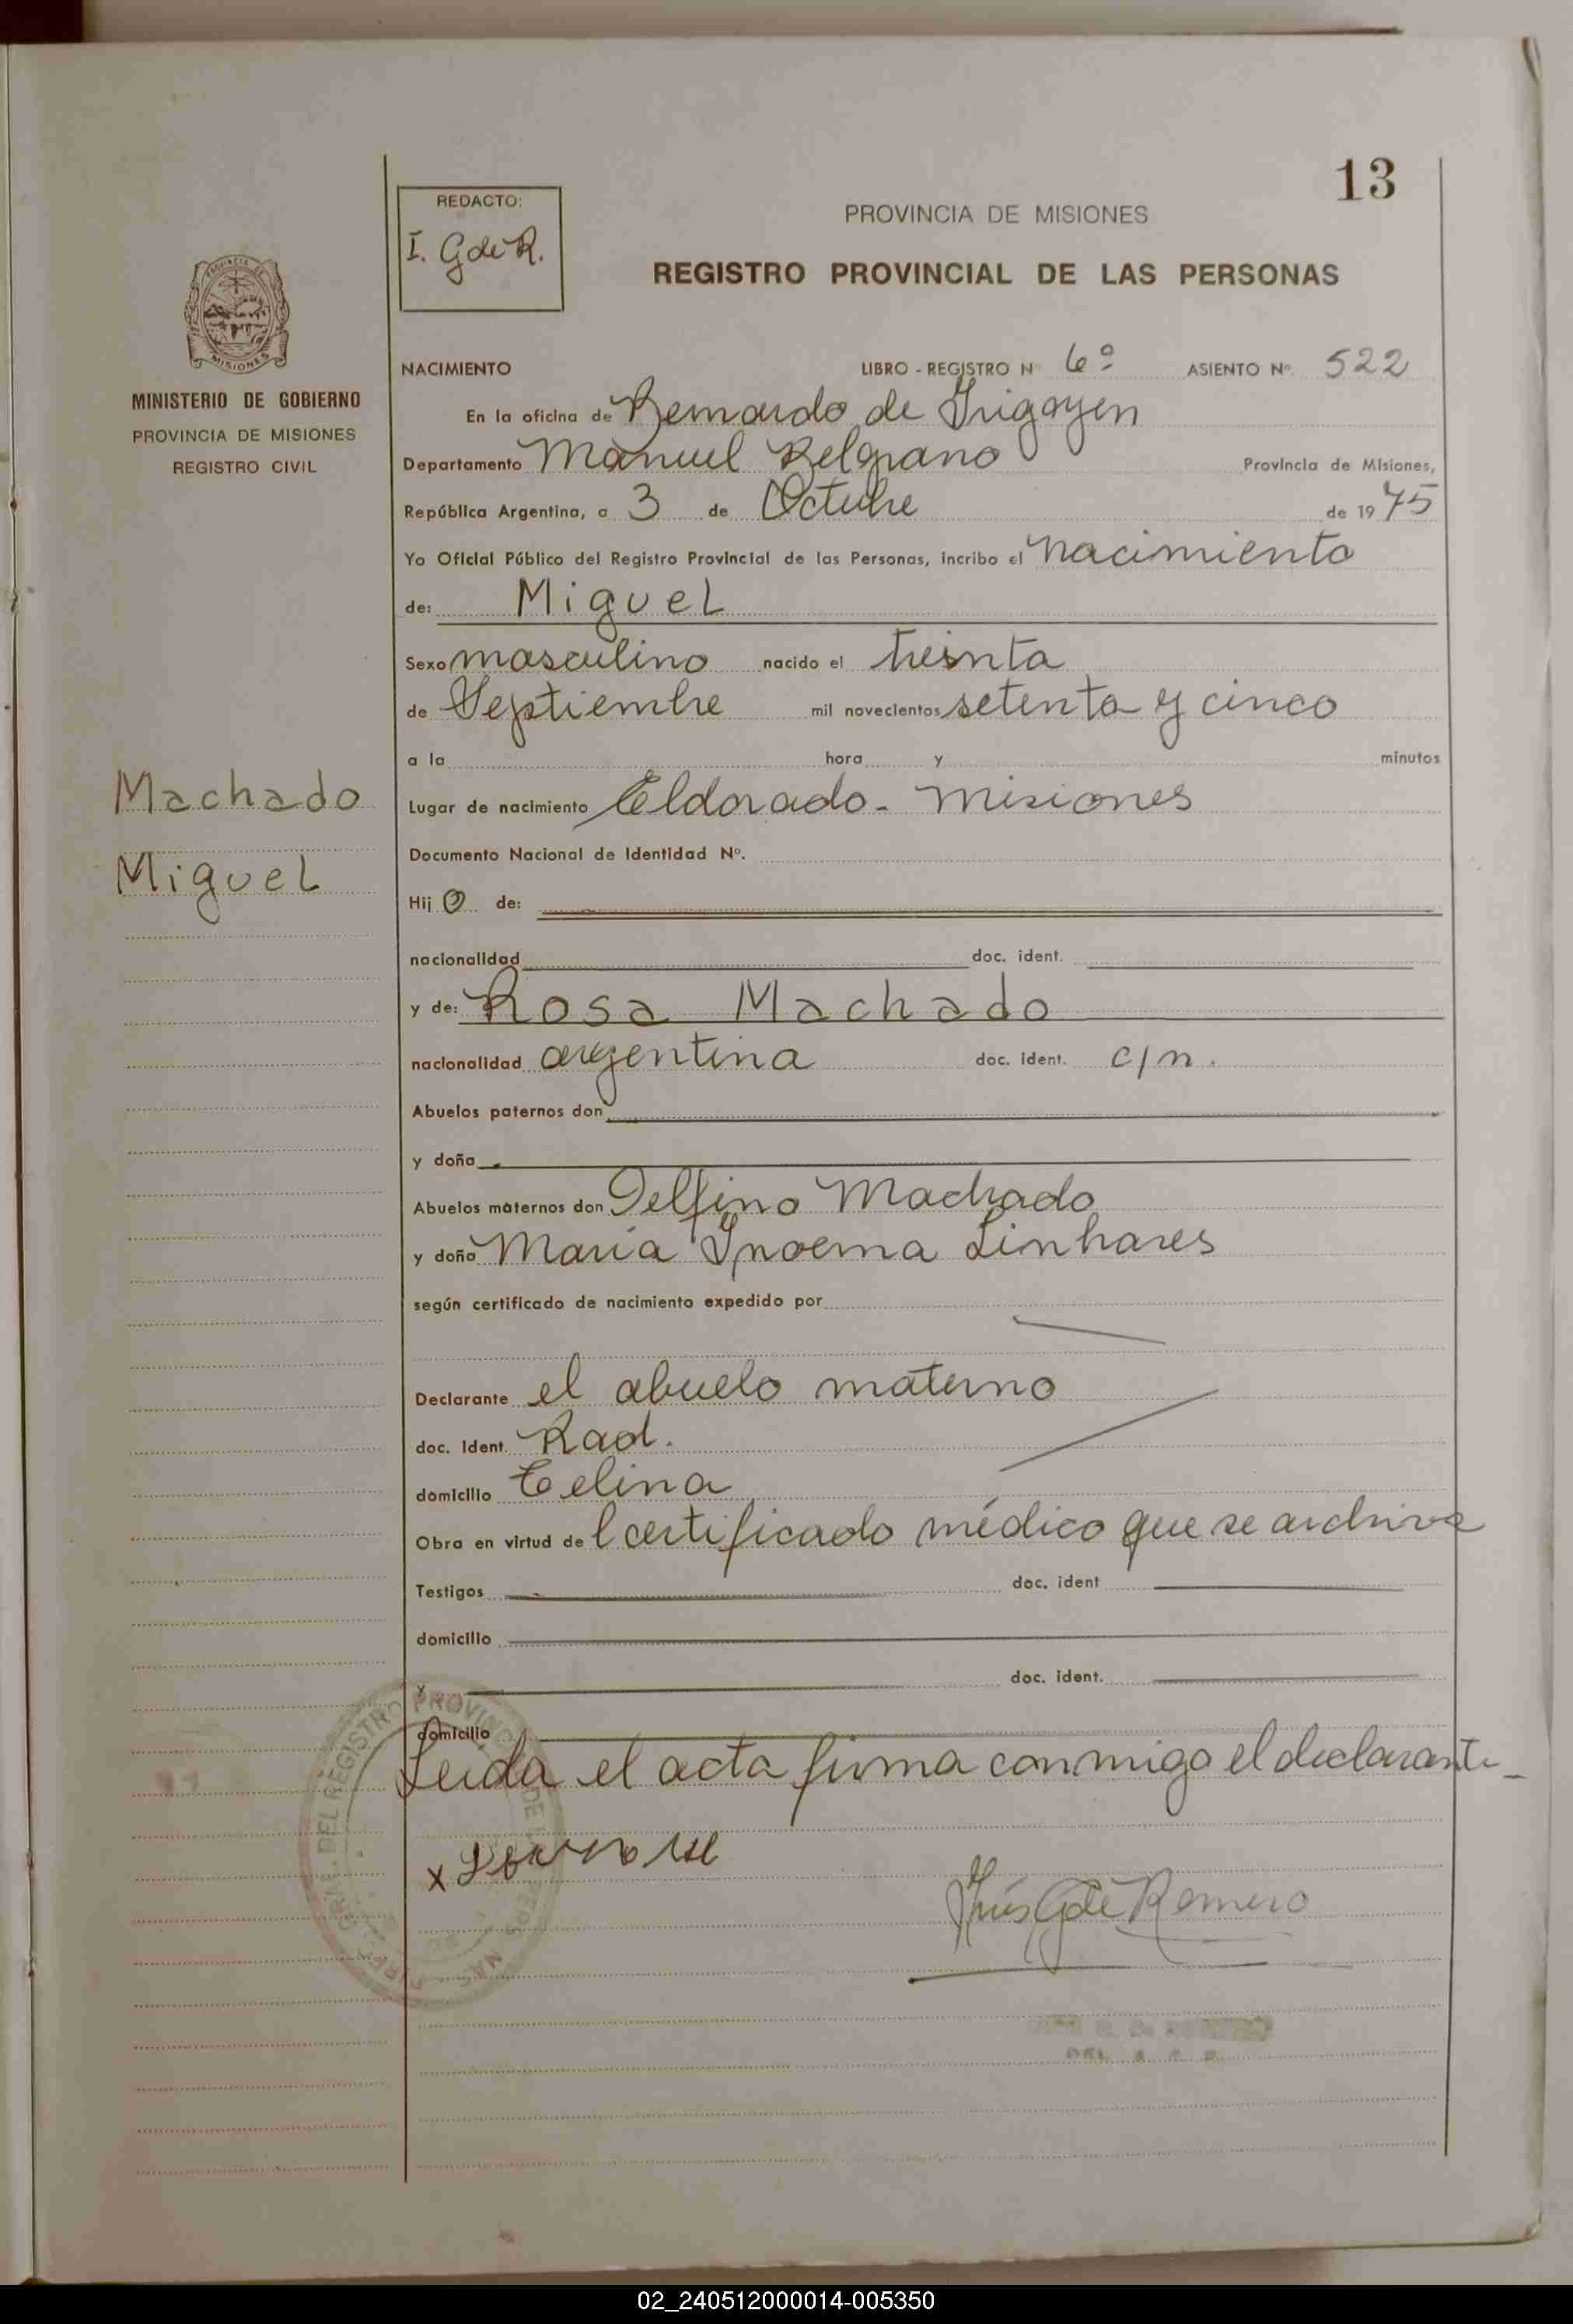 13
REDACTO:
I. G de R.
PROVINCIA DE MISIONES
REGISTRO PROVINCIAL DE LAS PERSONAS
PROVINCIA DE MISIONES
MINISTERIO DE GOBIERNO
PROVINCIA DE MISIONES
REGISTRO CIVIL
NACIMIENTO LIBRO - REGISTRO Nº 6º ASIENTO Nº. 522
En la oficina de Bernardo de Irigoyen
Departamento Manuel Belgrano Provincia de Misiones,
República Argentina, a 3 de Octubre de 1975
Yo Oficial Público del Registro Provincial de las Personas, incribo el nacimiento
de: Miguel
Sexo masculino nacido el treinta
de Septiembre mil novecientos setenta y cinco
a la hora y minutos
Machado
Lugar de nacimiento Eldorado - Misiones
Documento Nacional de Identidad Nº.
Miguel
Hijo de:
nacionalidad doc. ident.
y de: Rosa Machado
nacionalidad argentina doc. ident. c/n.
Abuelos paternos don
y doña
Abuelos maternos don Delfino Machado
y doña Maria Inoema Linhares
según certificado de nacimiento expedido por
Declarante el abuelo materno
doc. Ident. Rad.
domicilio Celina
Obra en virtud del certificado médico que se archiva
Testigos doc. ident
domicilio
y doc. ident.
domicilio
Leida el acta firma conmigo el declarante
x
Inés G de Romero
02_240512000014-005350